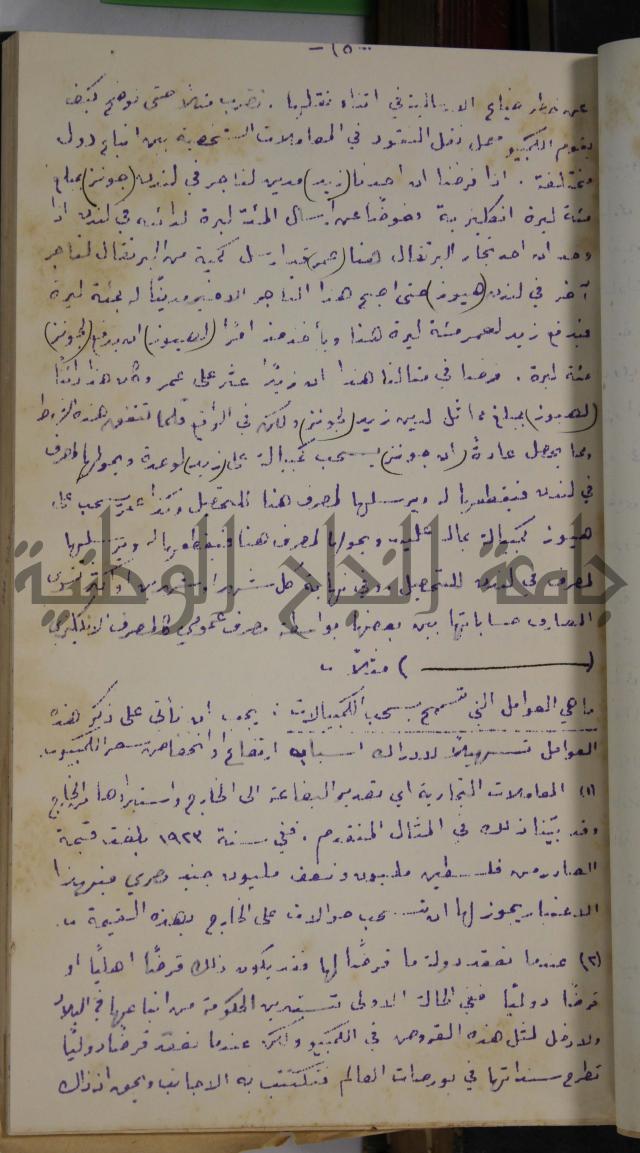 -١٥-
عن خطر ضياع الارسالية في اثناء نقلها. نضرب مثلاً حتى نوضح كيف
يقوم الكمبيو محل نقل النقود في المعاملات الشخصية بين اتباع دول
مختلفة. اذا فرضنا ان احدنا (زيد) مدين لتاجر في لندن (جونز) بمبلغ
مئة ليرة انكليزية وعوضًا عن ارسال المئة ليرة لدائنه في لندن اذا
وجد ان احد تجار البرتقال هنا (عمر) قد ارسل كمية من البرتقال لتاجر
آخر في لندن (هيوز) حتى اصبح هذا التاجر الاخير مدينًا له بمئة ليرة
فيدفع زيد لعمر مئة ليرة هنا ويأخذ منه امرًا (لهيوز) ان يدفع (لجونز)
مئة ليرة. فرضنا في مثالنا هذا ان زيدًا عثر على عمر وكان هذا دائنًا
(لهيوز) بمبلغ مماثل لدين زيد (لجونز) ولكن في الواقع قلما تتفق هذه الشروط
ومما يحصل عادةً (ان جونز) يسحب كمبيالة على (زيد) لوعدة ويحولها لمصرف
في لندن فيقطعها له ويرسلها لمصرف هنا للتحصيل وكذا عمر يسحب على
هيوز كمبيالة بماله عليه ويحولها لمصرف هنا فيقطعها له ويرسلها
لمصرف في لندن للتحصيل وفي نهاية كل شهر او شهرين او اكثر تسوى
المصارف حساباتها بين بعضها بواسطة مصرف عمومي كالمصرف الانكليزي
( ) مثلاً.
ما هي العوامل التي تسمح بسحب الكمبيالات: يجب ان نأتي على ذكر هذه
العوامل تسهيلاً لادراك اسباب ارتفاع او انخفاض سعر الكمبيو.
(١) المعاملات التجارية اي تصدير البضاعة الى الخارج واستيرادها من الخارج
وقد بيّنا ذلك في المثال المتقدم. ففي سنة ١٩٢٣ بلغت قيمة
الصادر من فلسطين مليون ونصف مليون جنيه مصري فبهذا
الاعتبار يجوز لها ان تسحب حوالات على الخارج بهذه القيمة.
(٢) عندما تعقد دولة ما قرضًا لها فقد يكون ذلك قرضًا اهليًا او
قرضًا دوليًا ففي الحالة الاولى تستدين الحكومة من اتباعها في البلاد
ولا دخل لمثل هذه القروض في الكمبيو ولكن عندما تعقد قرضًا دوليًا
تطرح سنداتها في بورصات العالم فتكتتب به الاجانب ويحق اذ ذاك
جامعة النجاح الوطنية